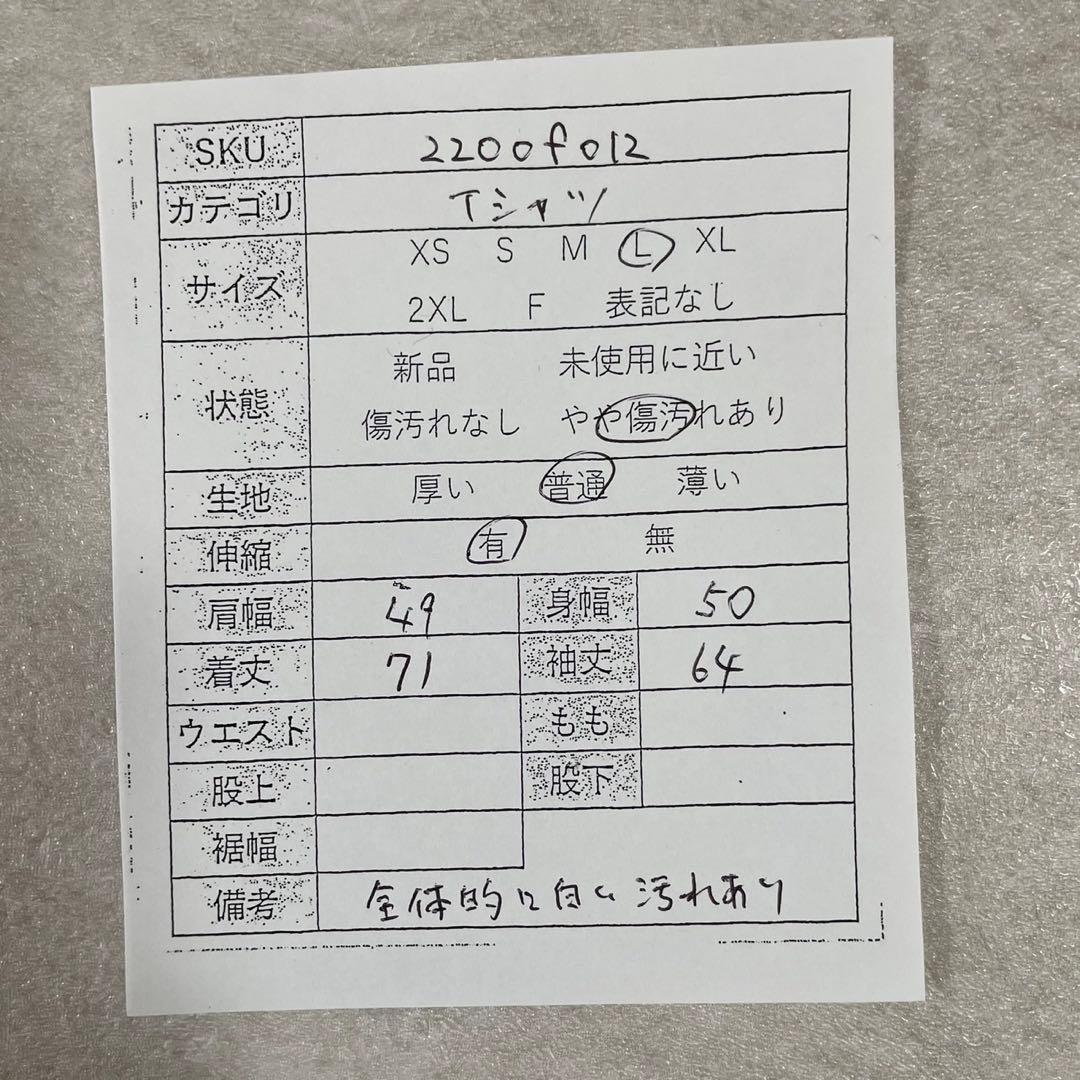 SKU 2200f012
カテゴリ Tシャツ
サイズ XS S M L XL
2XL F 表記なし
状態 新品 未使用に近い
傷汚れなし やや傷汚れあり
生地 厚い 普通 薄い
伸縮 有 無
肩幅 49 身幅 50
着丈 71 袖丈 64
ウエスト もも
股上 股下
裾幅
備考 全体的に白い汚れあり